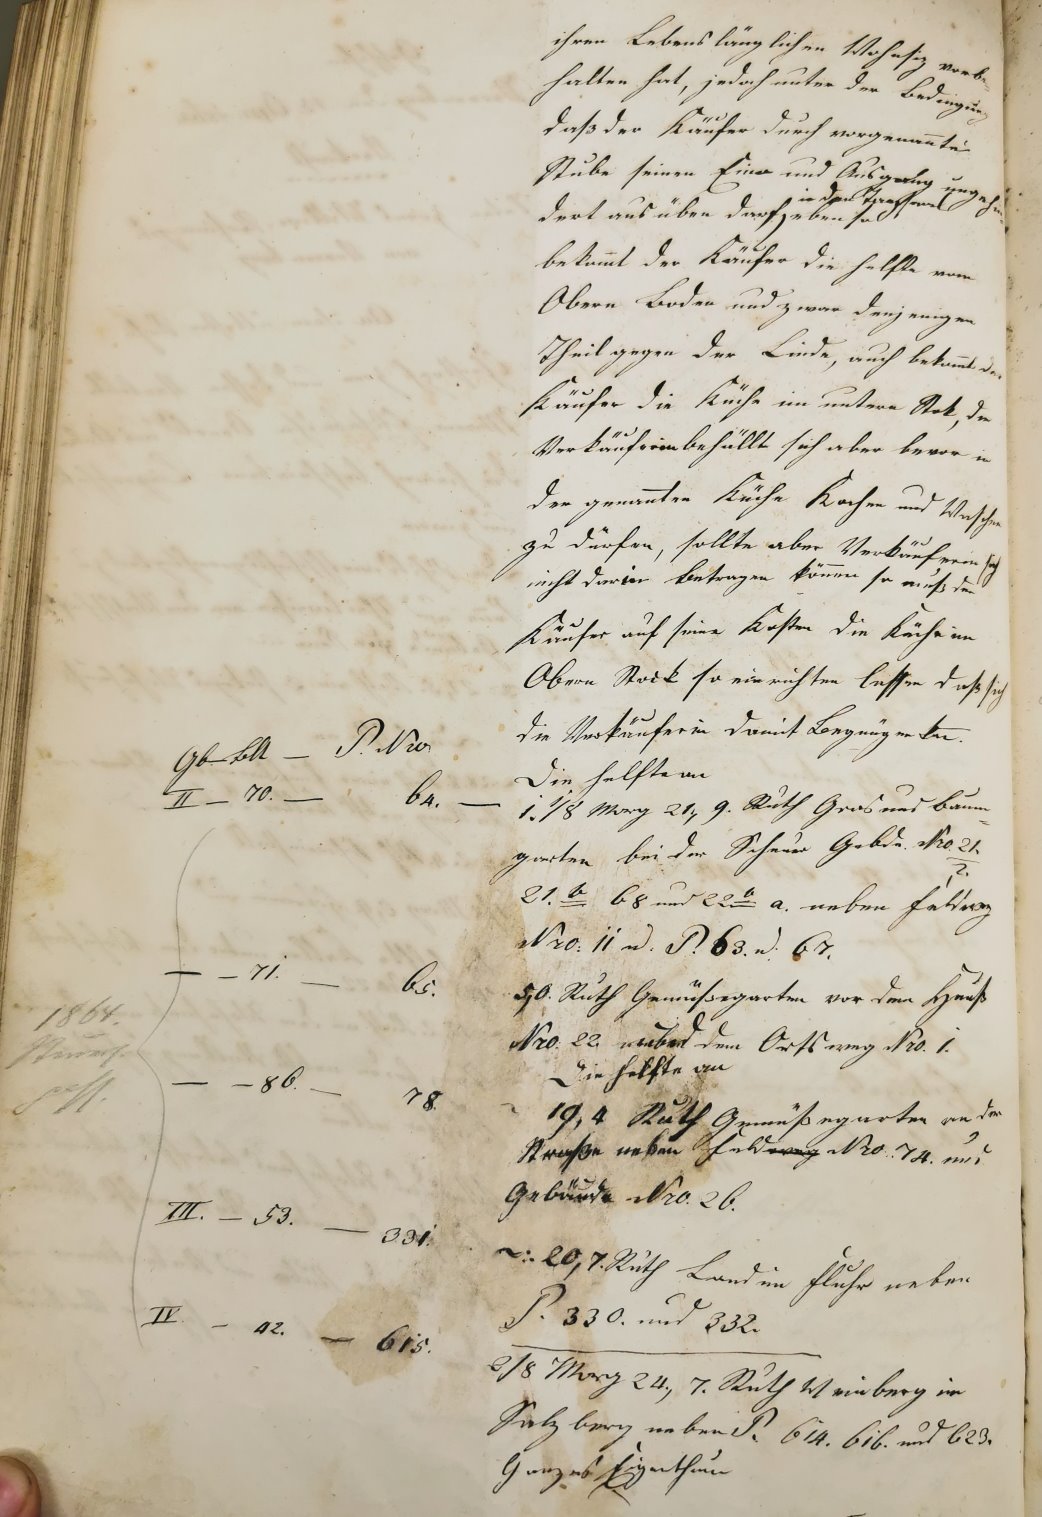 ihren Lebenslänglichen Wohnsiz vorbe-
halten hat, jedoch unter der Bedingung
daß der Käufer durch vorgenannte
Stube seinen Ein- und Ausgang ungehin-
in den
dert ausüben darf, ebenso
bekommt der Käufer die helfte vom
Obern Boden und zwar denjenigen
Theil gegen der Linde, auch bekommt der
Käufer die Küche im untern Stok, die
Verkäuferin behällt sich aber bevor in
der genannten Küche Kochen und Waschen
zu dürfen, sollte aber Verkäuferin sich
nicht darin betragen können so muß der
Käufer auf seine Kosten die Küche im
Obern Stock so einrichten lassen daß sich
die Verkäuferin damit Begnügen kann.
Gb. Bll — P. Nro.
Die helfte an
II — 70. — 64. — 1. 1/8 Morg 21, 9. Ruth Gras und Baum-
garten bei der Scheuer Gebde. Nro 21.
2.
21. b 68 und 22 b a. neben Feldweg
Nro: 11 u. P. 63. u. 67.
— — 71. — 65. 5,0. Ruth Gemüsegarten vor dem Hauß
Nro. 22 nebst dem Ortsweg Nro. 1.
1864.
Die helfte an
— — 86. — 78. 19, 4 Ruth Gemüßegarten an der
Straße neben Feldweg Nro. 74. und
Gebäude Nro. 26.
III. — 53. — 331. 20, 7. Ruth Land im Fluhr neben
P. 330. und 332.
IV. — 42. — 615. 2/8 Morg 24, 7. Ruth Weinberg im
Salzberg neben P. 614. 616. und 623.
Ganzes Eigenthum